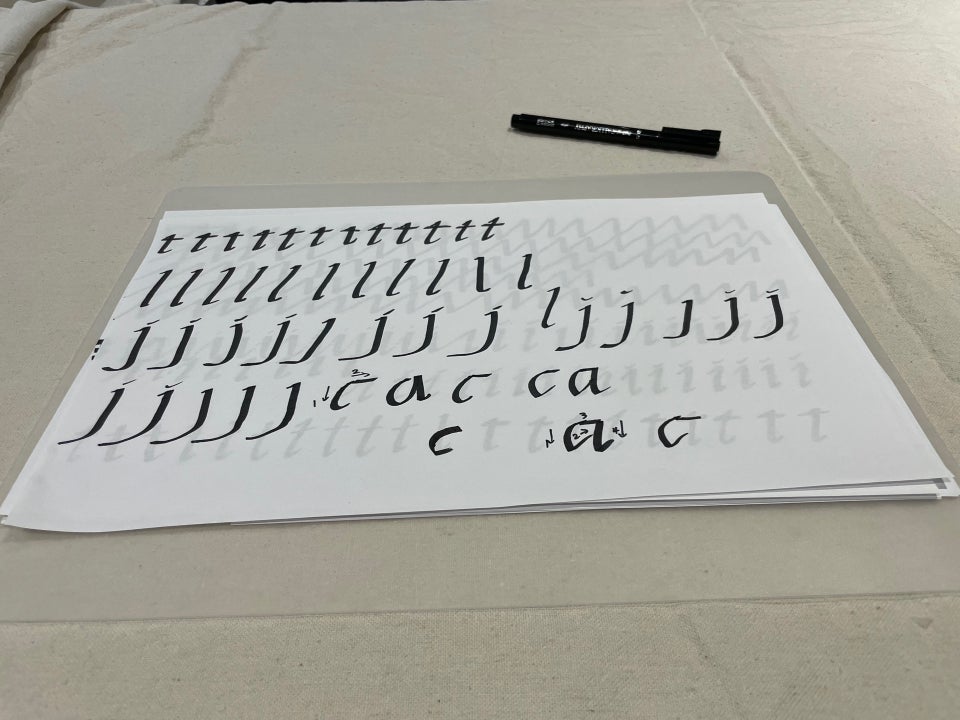 t t t t t t t t t t t t
l l l l l l l l l l l
j j j j j j j l j j j j j
j j j j j c a c c a
c a c